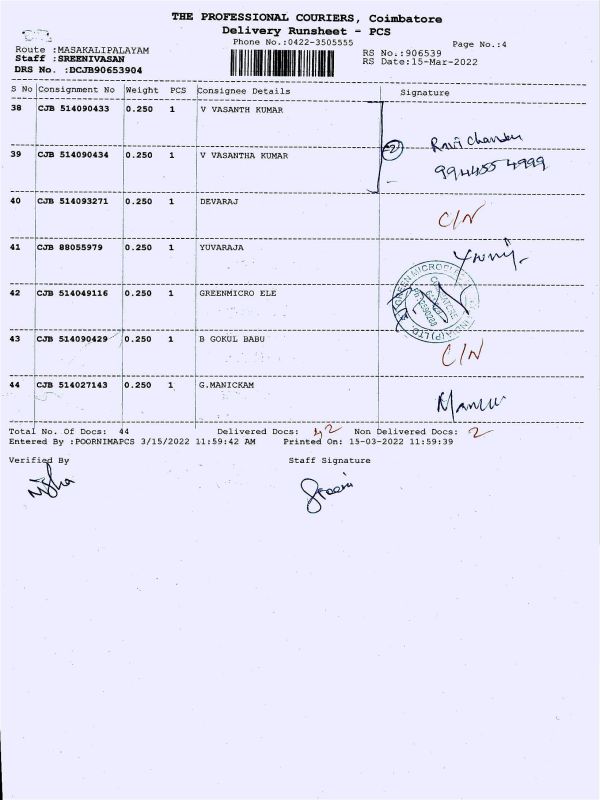 THE PROFESSIONAL COURIERS, Coimbatore
Delivery Runsheet - PCS
Phone No.:0422-3505555
Page No.:4
Route :MASAKALIPALAYAM
RS No.:906539
Staff :SREENIVASAN
RS Date:15-Mar-2022
DRS No. :DCJB90653904
S No Consignment No Weight PCS Consignee Details Signature
38 CJB 514090433 0.250 1 V VASANTH KUMAR
2 Ravi Chandran
39 CJB 514090434 0.250 1 V VASANTHA KUMAR
9944554999
40 CJB 514093271 0.250 1 DEVARAJ
C/N
41 CJB 88055979 0.250 1 YUVARAJA
GREEN MICRO
COIMBATORE
(INDIA) (P) LTD.
42 CJB 514049116 0.250 1 GREENMICRO ELE
43 CJB 514090429 0.250 1 B GOKUL BABU
C/N
44 CJB 514027143 0.250 1 G.MANICKAM
Total No. Of Docs: 44 Delivered Docs: 42 Non Delivered Docs: 2
Entered By :POORNIMAPCS 3/15/2022 11:59:42 AM Printed On: 15-03-2022 11:59:39
Verified By Staff Signature
Nisha Sreeni